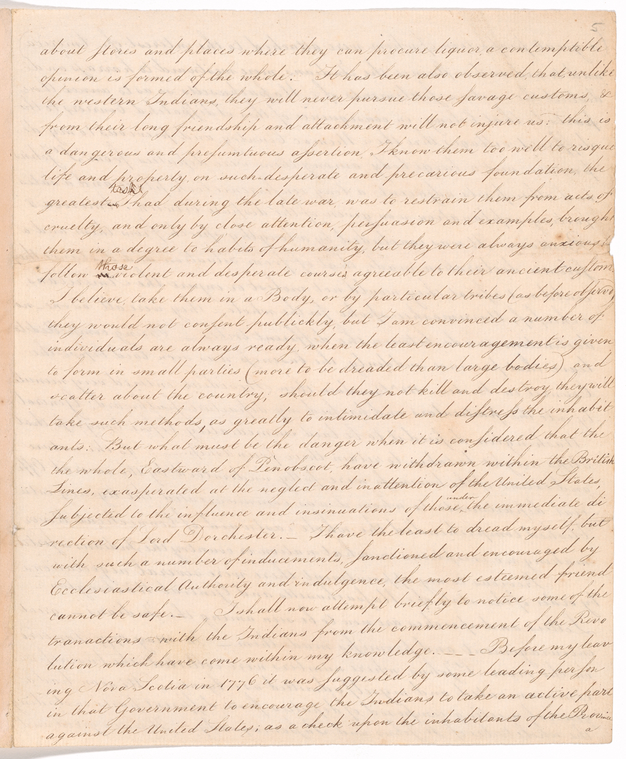 5
about stores and places where they can procure liquor, a contemptible
opinion is formed of the whole. It has been also observed, that unlike
the western Indians, they will never pursue those savage customs, &
from their long friendship and attachment will not injure us: this is
a dangerous and presumtuous assertion I know them too well to risque
life and property on such desperate and precarious foundation, the
greatest task I had during the late war was to restrain them from acts of
cruelty, and only by close attention, persuasion and examples, brought
them in a degree to habits of humanity, but they were always anxious to
follow those violent and desperate courses agreeable to their ancient customs
I believe take them in a Body, or by particular tribes (as before observ
they would not consent publickly, but I am convinced a number of
individuals are always ready, when the least encouragement is given
to form in small parties (more to be dreaded than large bodies) and
scatter about the country, should they not kill and destroy, they will
take such methods, as greatly to intimidate and distress the inhabit
ants. But what must be the danger when it is considered that the
the whole, Eastward of Penobscot, have withdrawn within the British
Lines, exasperated at the neglect and inattention of the United States,
subjected to the influence and insinuations of those, under the immediate di
rection of Lord Dorchester. — I have the least to dread myself, but
with such a number of inducements, sanctioned and encouraged by
Ecclesiastical Authority and indulgence, the most esteemed friend
cannot be safe. — I shall now attempt briefly to notice some of the
tranactions with the Indians from the commencement of the Revo
lution which have come within my knowledge. — — Before my leav
ing Nova Scotia in 1776 it was suggested by some leading person
in that Government to encourage the Indians to take an active part
against the United States, as a check upon the inhabitants of the Province
a